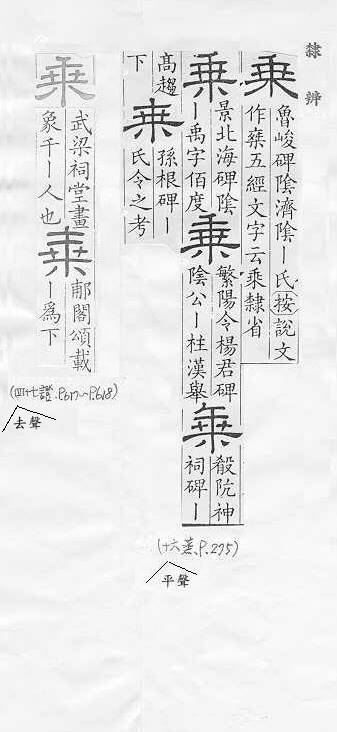 隸辨
乘 魯峻碑陰濟陰ー氏按說文
作椉五經文字云乘隸省
乘 景北海碑陰
ー禹字佰度
乘 繁陽令楊君碑
陰公ー柱漢舉
乘 殺阬神
祠碑ー
高趨
下
乘 孫根碑ー
氏令之考
(十六蒸、P.275)
平聲
乘 武梁祠堂畫
象千ー人也
乘 郙閣頌載
ー爲下
(四十七證、P.617~P.618)
去聲